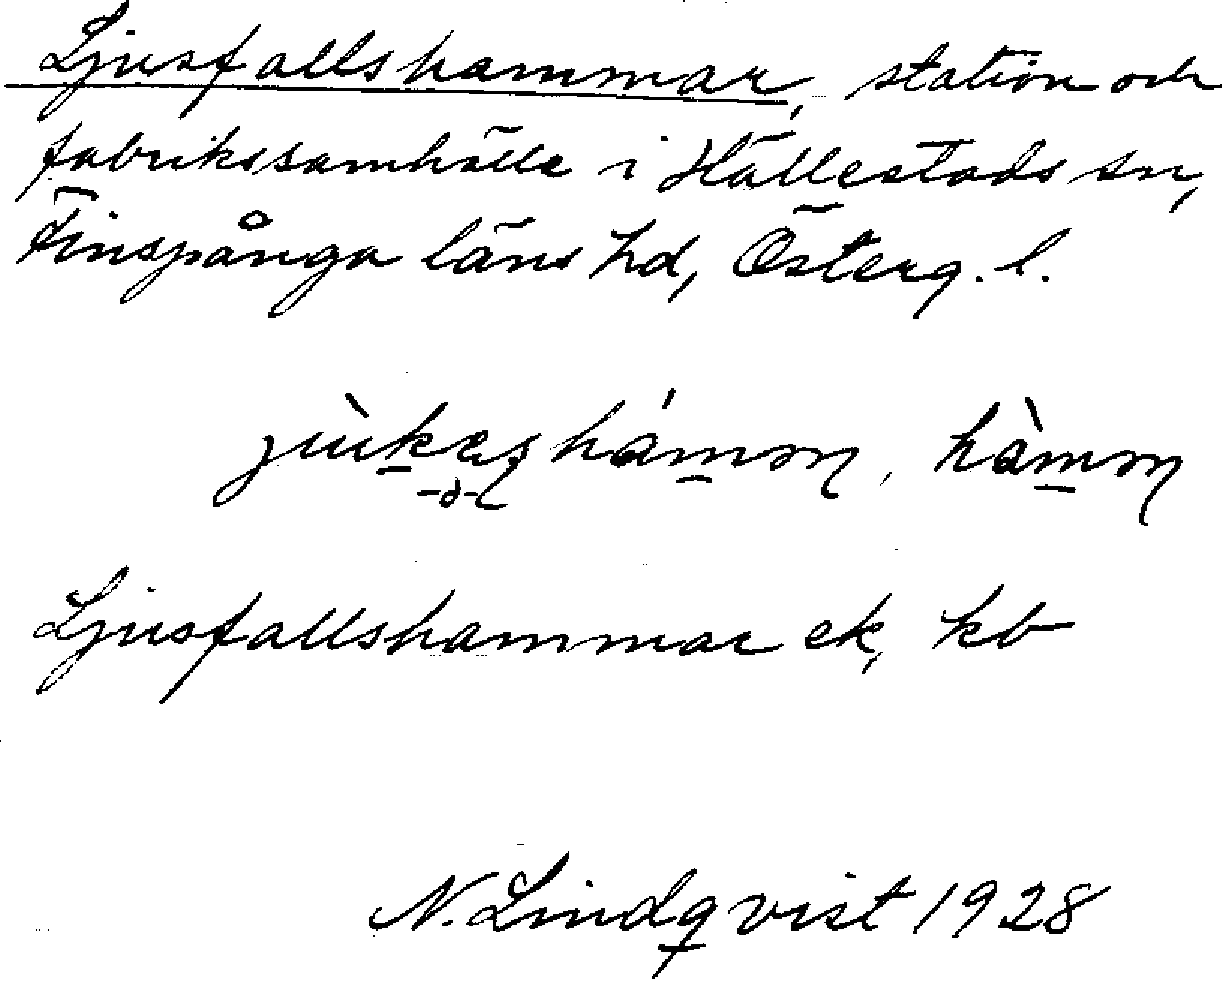 Ljusfallshammar, station och
fabrikssamhälle i Hällestads sn,
Finspånga läns hd, Österg. l.
Ljusfallshammar ek, kb
N. Lindqvist 1928